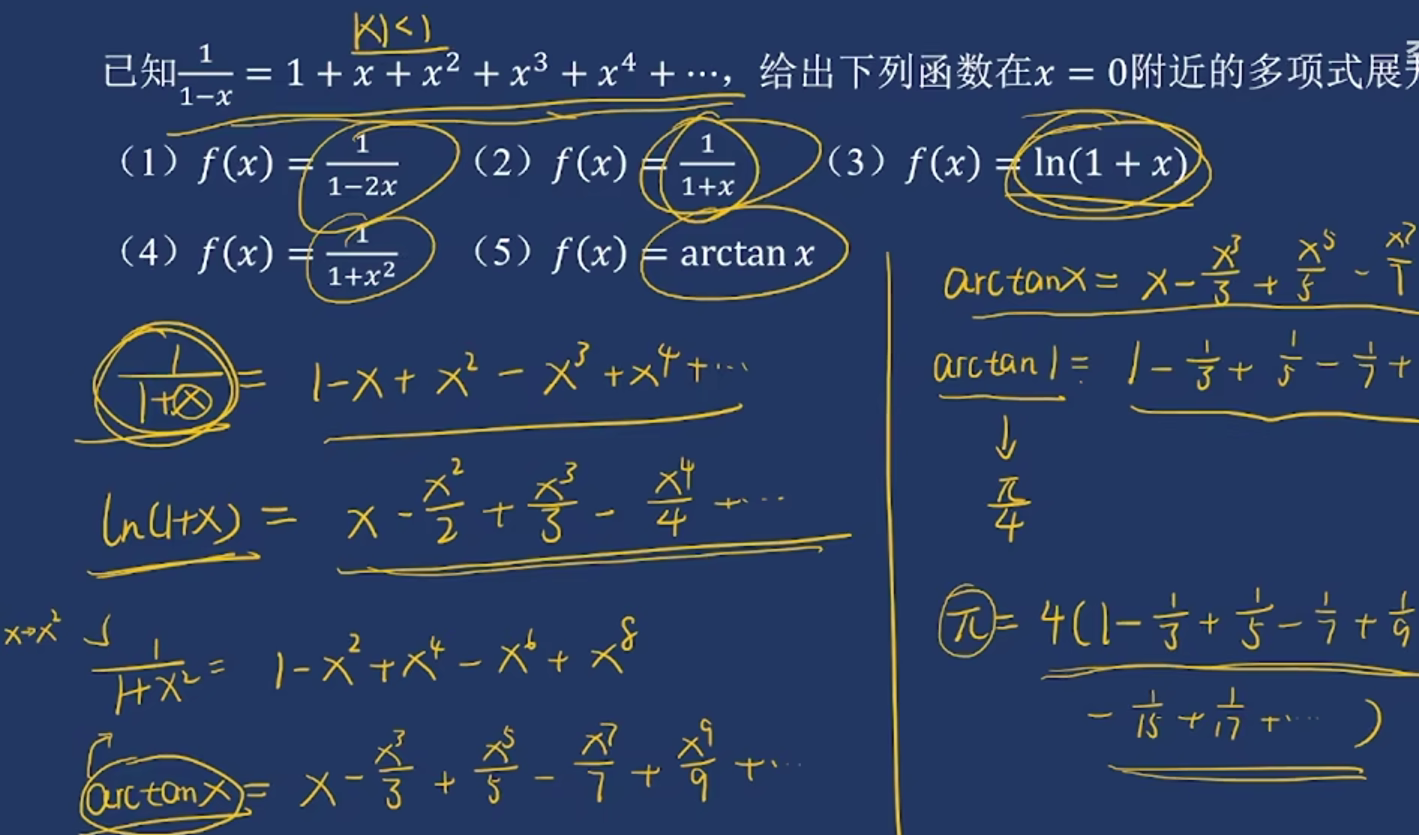 |x|<1
已知1/(1−x) = 1 + x + x² + x³ + x⁴ + ⋯，给出下列函数在x = 0附近的多项式展
（1）f(x) = 1/(1−2x) （2）f(x) = 1/(1+x) （3）f(x) = ln(1 + x)
（4）f(x) = 1/(1+x²) （5）f(x) = arctan x
1/(1+x) = 1-x+x²-x³+x⁴+⋯
ln(1+x) = x-x²/2+x³/3-x⁴/4+⋯
x→x² ∫ 1/(1+x²) = 1-x²+x⁴-x⁶+x⁸
arctanx = x-x³/3+x⁵/5-x⁷/7+x⁹/9+⋯
arctanx = x-x³/3+x⁵/5-x⁷/7
arctan1 = 1-1/3+1/5-1/7+
↓
π/4
π = 4(1-1/3+1/5-1/7+1/9
-1/15+1/17+⋯)